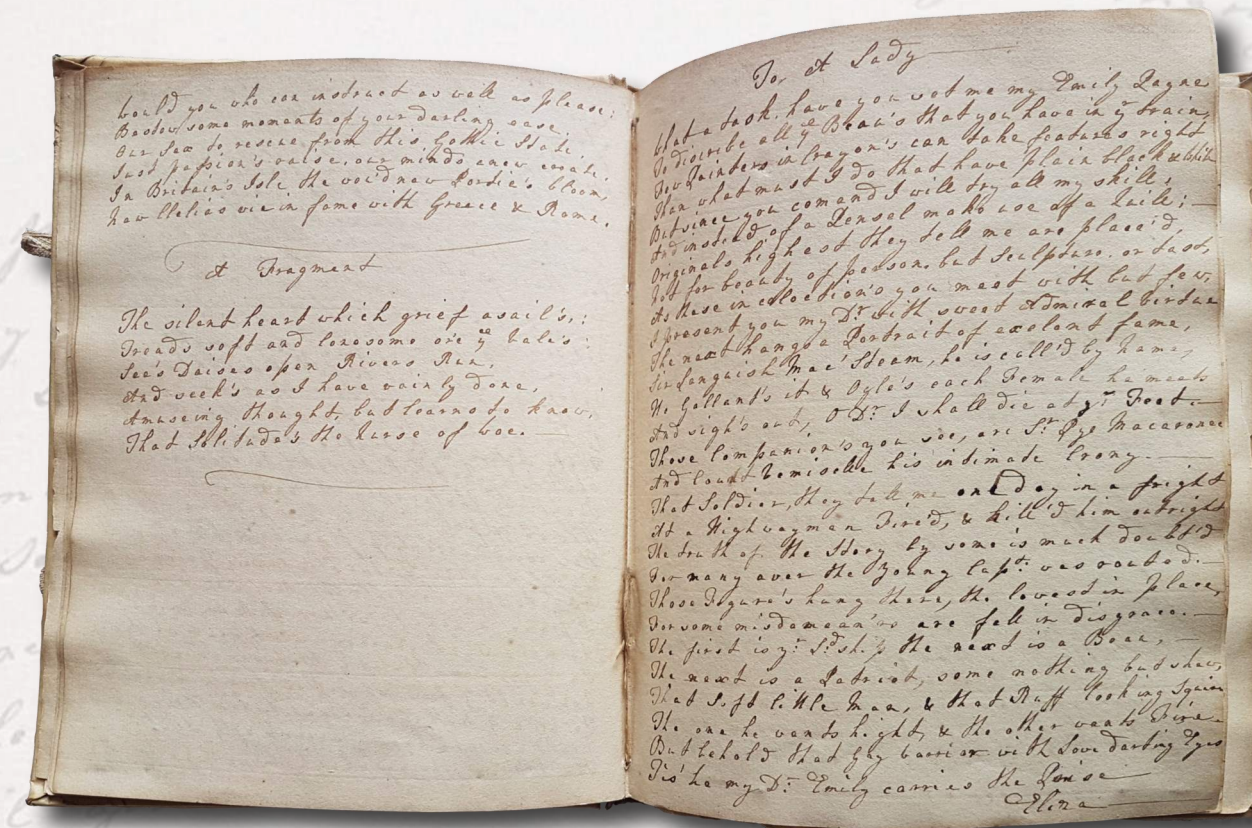 Would you who can instruct as well as please;
Bestow some moments of your darling ease,
Our Sex to rescue from this Gothic State,
Just passion's raise, our minds anew create.
In Britain's Isle the void new Portia's bloom,
New Clelias vie in fame with Greece & Rome.
A Fragment
The silent heart which grief asail's,:
Treads soft and lonesome ore ye Vale's:
See's Daises open Rivers Run,
And seek's as I have vainly Done,
Amuseing thought, but learns to know,
That Solitude's the Nurse of Woe.
For A Lady
What a task have you set me my Emily Payne
To discribe all ye Beau's that you have in yr train,
Few Painters in Crayon's can take features right
Then what must I do that have plain black & white
But since you comand I will try all my skill,
And instead of a Pensel make use of a Quill;
Originals highest they tell me are place'd,
Not for beauty of person, but Sculpture, or tast,
As these in collection's you meet with but few,
I present you my Dr with sweet Admiral
The next hangs a Portrait of exelent fame,
Sir Languish Mac'Steam, he is call'd by name,
He Gallant's it & Ogle's each Female he meets
And sigh's out, O Dr I shall die at yr Feet.
Those Companion's you see, are Sr Macaronee
And Count his intimade Crony.
That Soldier, they tell me one Day in a fright
At a Highwayman Fire'd, & kill'd him outright
The truth of the Story by some is much doubt'd
For many aver the Young Capt: was routed.
Those Figure's hung there, the lowest in place,
For some misdemean'rs are fell in disgrace.
The first is yr the next is a Beau,
The next is a Patriot, some nothing but shew,
That soft little Man, & that Ruff looking Squire
The one he wants hight, & the other wants Fire.
But behold that Gay warrior with Love darting Eyes
Tis' he my Dr: Emily carries the Prise
Eliza